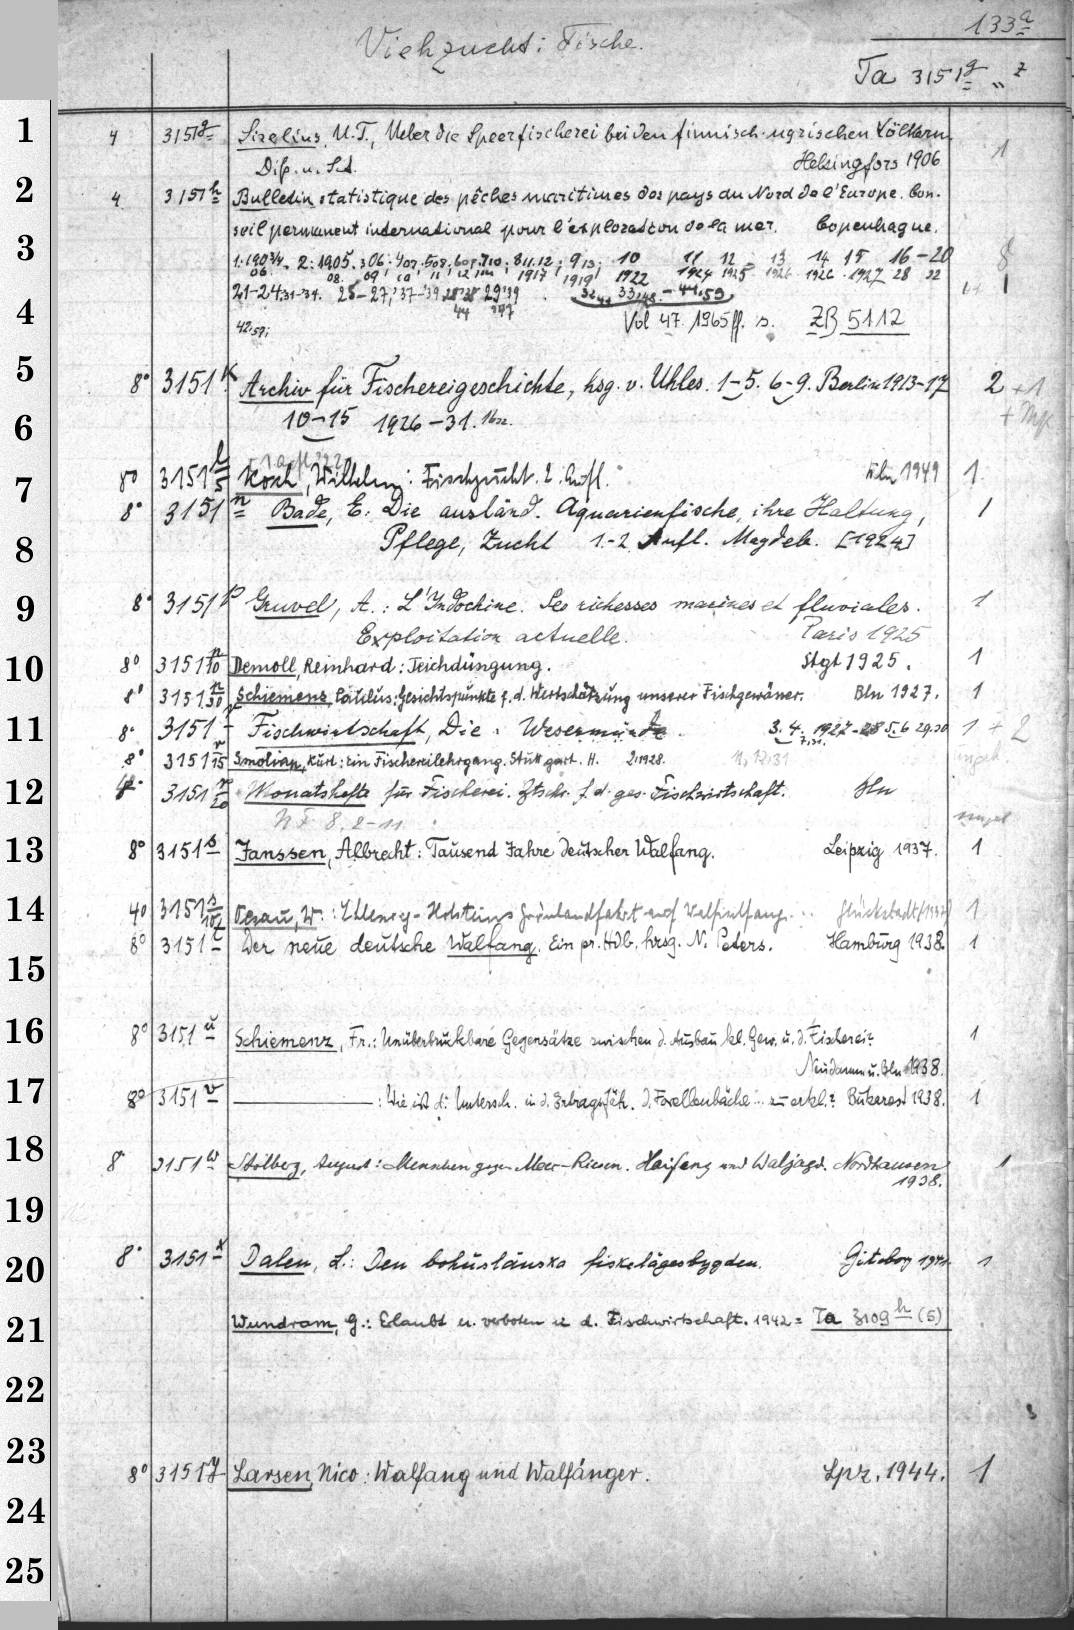 133a
Viehzucht: Fische.
Ta 3151g „ z
1 4 3151g Sirelius, U.T., Ueber die Speerfischerei bei den finnisch-ugrischen Völkern. 1
Diss. u. SA. Helsingfors 1906
2 4 3151h Bulletin statistique des pêches maritimes des pays du Nord de l'Europe. Con-
seil permanent international pour l'exploration de la mer. Copenhague.
3 8
16-20
21-24 25-27 1
4 Vol 47. 1965ff. s. ZB 5112
5 8° 3151k Archiv für Fischereigeschichte, hsg. v. Uhles. 1-5. 6-9. Berlin 1913-17 2 +1
6 10-15 1926-31.
7 8° 3151 l/5 Koch, Wilhelm: Fischzucht. 2. Aufl. 1949 1.
8° 3151n Bade, E. Die ausländ. Aquarienfische, ihre Haltung, 1
8 Pflege, Zucht 1.-2 Aufl. Magdeb. [1924]
9 8° 3151p Gruvel, A.: L'Indochine. Ses richesses marines et fluviales. 1
Exploitation actuelle. Paris 1925
10 8° 3151 p/10 Demoll, Reinhard: Teichdüngung. Stgt 1925. 1
8° 3151 p/30 Schiemenz, Paulus: Gesichtspunkte f. d. Wertschätzung unserer Fischgewässer. Bln 1927. 1
11 8° 3151r Fischwirtschaft, Die. Wesermünde. 3. 4. 1927-28 5.6 29.30 1 + 2
8° 3151 r/15 Smolian, Kurt: Ein Fischereilehrgang. Stuttgart. H. 2.1928.
12 3151 r/20 Monatshefte für Fischerei. Ztschr. f. d. ges. Fischwirtschaft. Bln
N.F. 8, 2-11
13 8° 3151s Janssen, Albrecht: Tausend Jahre deutscher Walfang. Leipzig 1937. 1
14 40 3151 s/10 Oesau, W.: Schleswig-Holsteins Grönlandfahrt auf Walfischfang... Glückstadt (1937) 1
8° 3151t Der neue deutsche Walfang. Ein pr. Hdb. hrsg. N. Peters. Hamburg 1938. 1
15
16 8° 3151u Schiemenz, Fr.: Unüberbrückbare Gegensätze zwischen d. Ausbau kl. Gew. u. d. Fischerei? 1
Neudamm u. Bln 1938.
17 8° 3151v ———: Wie ist d. Untersch. in d. Ertragsfäh. d. Forellenbäche... zu erkl.? Bukarest 1938. 1
18 8° 3151w Stolberg, August: Menschen gegen Meer-Riesen. Haifang und Waljagd. Nordhausen 1
1938.
19
20 8° 3151x Dalen, L.: Den bohuslänska fiskelägesbygden. Göteborg 1941. 1
21 Wundram, G.: Erlaubt u. verboten in d. Fischwirtschaft. 1942 = Ta 3109h (5)
22
23 8° 3151y Larsen, Nico: Walfang und Walfänger. Lpz. 1944. 1
24
25